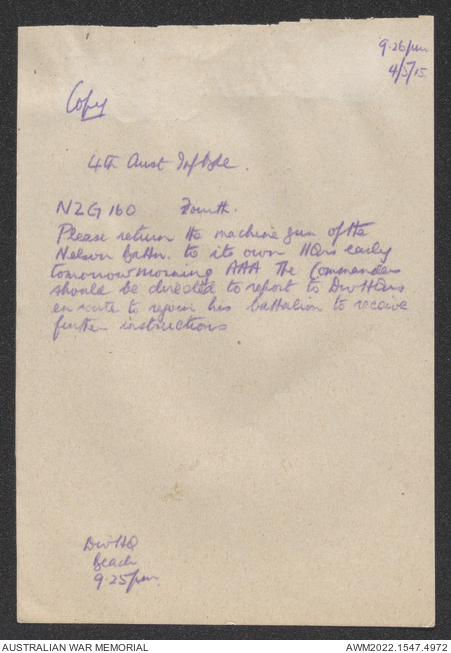 9.26pm
4/5/15
Copy
4th Aust Inf Bde.
NZG 160 Fourth.
Please return the machine gun of the
Nelson Battn. to its own HQrs early
tomorrow morning AAA The Commander
should be directed to report to Div HQrs
en route to rejoin his battalion to receive
further instructions
Div HQ
Beach
9.25pm
AUSTRALIAN WAR MEMORIAL
AWM2022.1547.4972